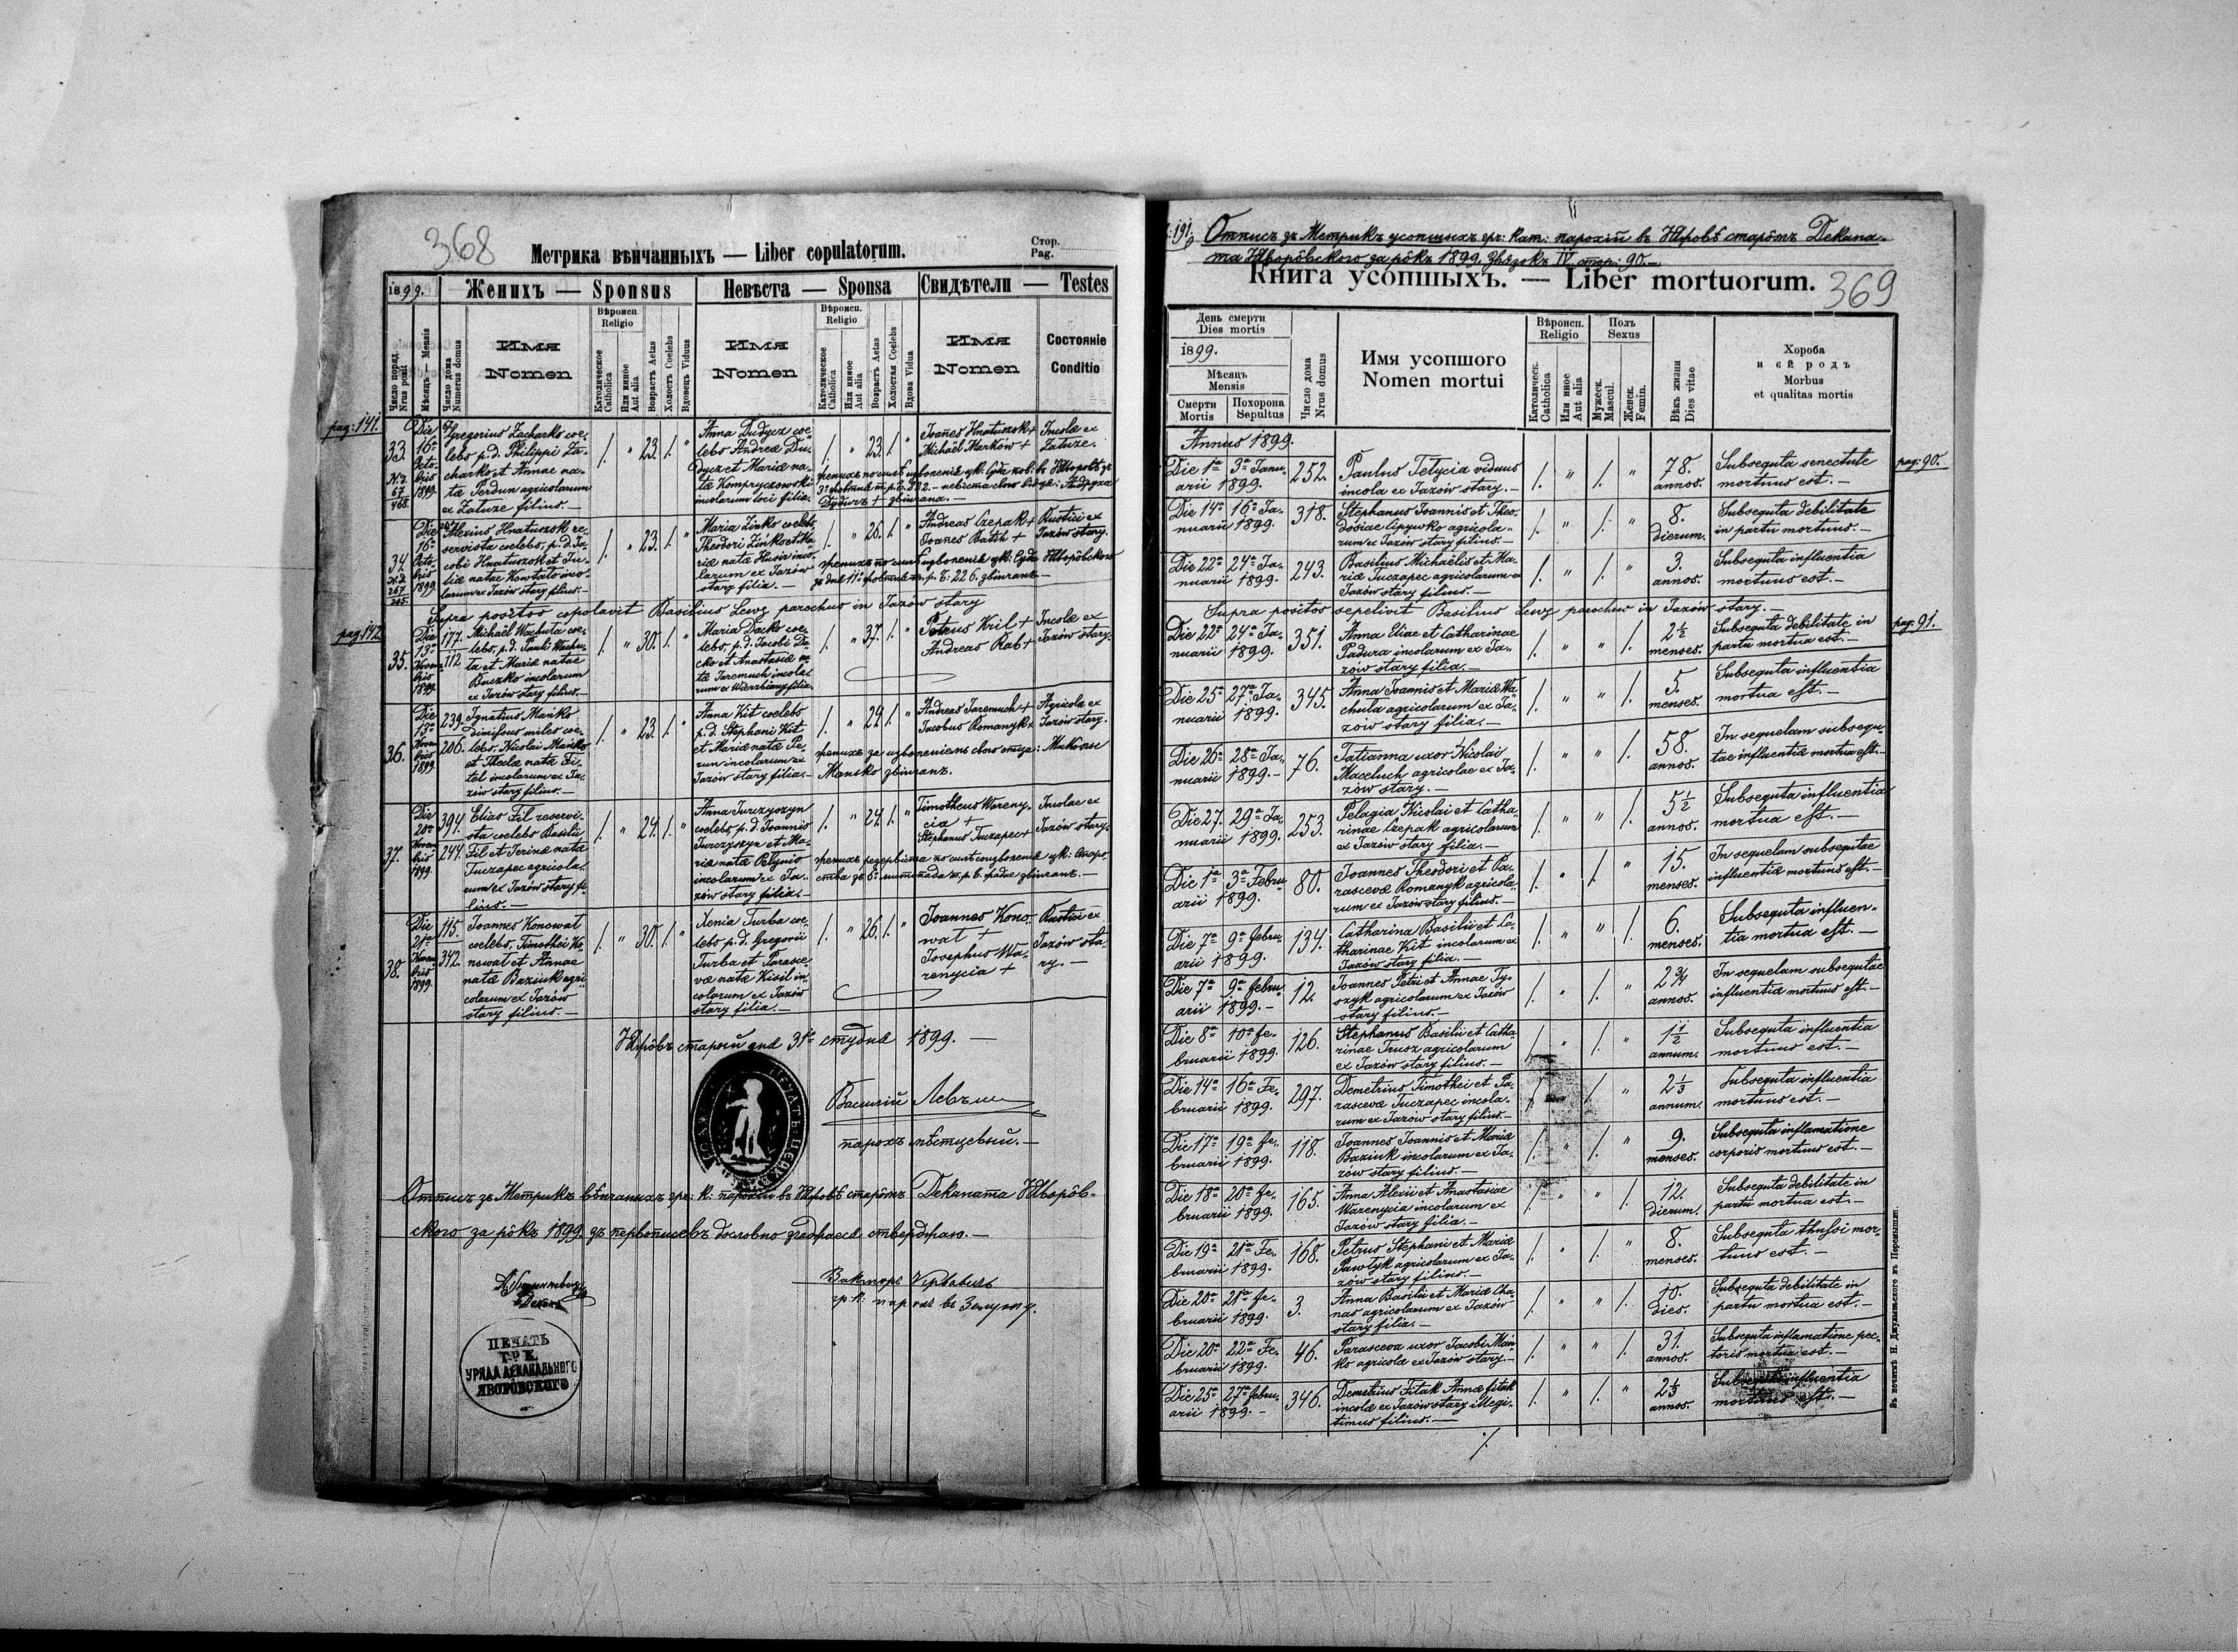 368
Метрика вѣнчанныхъ — Liber copulatorum.
Стор.
Pag.
1899.
Женихъ — Sponsus
Невѣста — Sponsa
Свидѣтели — Testes
Число поряд.
Nrus posit
Мѣсяць — Mensis
Число дома
Numerus domus
Имя
Nomen
Вѣроисп.
Religio
Католическое
Catholica
Или иное
Aut alia
Возрастъ Aetas
Холостъ Coelebs
Вдовецъ Viduus
Имя
Nomen
Вѣроисп.
Religio
Католическое
Catholica
Или иное
Aut alia
Возрастъ Aetas
Холостая Coelebs
Вдова Vidua
Имя
Nomen
Состояніе
Conditio
pag: 141.
33
Die
16ª
Octo-
bris
1899.
Gregorius Zacharko coe-
lebs p. d. Philippi Za-
charko et Annae na-
tæ Perdun agricolarum
ex Załuże filius.—
/. " 23. /. "
Anna Dudycz coe-
lebs Andreæ Du-
dycz et Mariæ na-
tæ
incolarum loci filia.
/. " 23. /. "
Joañes Hnatuszok +
Michaël Marków +
Incolæ ex
Załuże.
34.
Die
16ª
Octo-
bris
1899.
Alexius Hnatuszok re-
servista coelebs, p. d. Ja-
cobi Hnatuszok et Ju-
liæ natae Kowtało inco-
larum ex Jazów stary filius.—
/. " 23. /. "
Maria Zinko coelebs
Theodori Zinko et Ma-
riæ natæ Husir inco-
larum ex Jazów
stary filia.—
/. " 26. /. "
Andreas Czepak +
Joanes Batih +
Rustici ex
Jazów stary.
Supra positos copulavit Basilius Lewz parochus in Jazów stary
pag: 142
35.
Die
13ª
Novem-
bris
1899.
177.
112
Michaël Wachuta coe-
lebs, p. d. Pauli Wachu-
ta et Mariæ natae
Buczko incolarum
ex Jazów stary filius.—
/. " 30. /. "
Maria Dacko coe-
lebs, p. d. Jacobi Da-
cko et Anastasiæ na-
tæ Jaremuch incola-
rum ex Wierzbiany filia.
/. " 37. /. "
Petrus Kril +
Andreas Rab +
Incolæ ex
Jazów stary.
36.
Die
13ª
Novem-
bris
1899
239.
206.
Ignatius Mańko
Dimissus miles coe-
lebs, Nicolai Mańko
et Theclæ natæ Fi-
tel incolarum ex Ja-
zów stary filius.—
/. " 23. /. "
Anna Kit coelebs
p. d. Stephani Kit
et Mariæ natæ Pe-
run incolarum ex
Jazów stary filia.—
/. " 24. /. "
Andreas Jaremuch +
Jacobus Romanyk +
Agricolæ ex
Jazów stary.
женихъ за изволеніемъ свого отца: Миколы
Манько звінчанъ.
37.
Die
20ª
Novem-
bris
1899
394.
244.
Elias Fil reservi-
sta coelebs Basilii
Fil et Irinæ natæ
Tuczapec agricola-
rum ex Jazów stary fi-
lius.—
/. " 24. /. "
Anna Jurczyszyn
coelebs, p. d. Joannis
Jurczyszyn et Ma-
riæ natæ Petynio
incolarum ex Ja-
zów stary filia.—
/. " 24. /. "
Timotheus Wareny-
cia +
Stephanus Tuczapec +
Incolae ex
Jazów stary.
38.
Die
21ª
Novem-
bris
1899.
115.
342.
Joannes Konowat
coelebs, Timothei Ko-
nowat et Annae
natæ Baziuk agri-
colarum ex Jazów
stary filius.—
/. " 30. /. "
Xenia Turba coe-
lebs p. d. Gregorii
Turba et Parasce-
væ natæ Kisil in-
colarum ex Jazów
stary filia.—
/. " 26. /. "
Joannes Kono-
wat +
Josephus Wa-
renycia +
Rustici ex
Jazów sta-
ry.—
Яворôвъ старый дня 31го студня 1899.—
Василій Левъ
парохъ мѣстцевый.—
Отписъ зъ Метрикъ вѣнчаныхъ гре: к: парохіи въ Язôвѣ старôмъ Деканата Яворôв-
ского за рôкъ 1899. зъ первописевъ дословно згаджаєся стверджаю.—
Декан
ПЕЧАТЬ
ГР. К.
УРЯДА ДЕКАНАЛЬНОГО
ЯВОРОВСКОГО
191.
Отписъ зъ Метрикъ усопшыхъ гр: кат: парохіи въ Язôвѣ старôмъ Декана-
та Яворôвского за рôкъ 1899. Звязокъ IV. стор: 90.—
Книга усопшыхъ. — Liber mortuorum.
369
День смерти
Dies mortis
1899.
Мѣсяцъ
Mensis
Смерти
Mortis
Похорона
Sepultus
Число дома
Nrus domus
Имя усопшого
Nomen mortui
Вѣроисп.
Religio
Католическ.
Catholica
Или иное
Aut alia
Полъ
Sexus
Мужеск.
Mascul.
Женск.
Femin.
Вѣкъ жизни
Dies vitae
Хороба
и єй родъ
Morbus
et qualitas mortis
Annus 1899.
pag: 90.
Die 1ª 3ª Janu-
arii 1899.
252.
Paulus Tetycia viduus
incola ex Jazów stary.—
/. " /. "
78.
annos.
Subsequta senectute
mortuus est.—
Die 14ª 16ª Ja-
nuarii 1899.
318.
Stephanus Joannis et Theo-
dosiae Cipywko agricola-
rum ex Jazów stary filius.—
/. " /. "
8.
dierum.
Subsequta debilitate
in partu mortuus.—
Die 22ª 24ª Ja-
nuarii 1899.
243.
Basilius Michaëlis et Ma-
riæ Tuczapec agricolarum ex
Jazów stary filius.—
/. " /. "
3.
annos.
Subsequta influentia
mortuus est.—
Supra positos sepelivit Basilius Lewz parochus in Jazów stary.—
pag: 91.
Die 22ª 24ª Ja-
nuarii 1899.
351.
Anna Eliae et Catharinae
Padura incolarum ex Ja-
zów stary filia.—
/. " " /.
2½
menses.
Subsequta debilitate in
partu mortua est.—
Die 25ª 27ª Ja-
nuarii 1899.
345.
Anna Joannis et Mariæ Wa-
chula agricolarum ex Ja-
zów stary filia.—
/. " " /.
5.
menses.
Subsequta influentia
mortua est.—
Die 26ª 28ª Ja-
nuarii 1899.—
76.
Tatianna uxor Nicolai
Maceluch agricolae ex Ja-
zów stary.—
/. " " /.
58.
annos.
In sequelam subsequ-
tae influentiæ mortua est.—
Die 27. 29ª Ja-
nuarii 1899.
253.
Pelagia Nicolai et Catha-
rinae Czepak agricolarum
ex Jazów stary filia.—
/. " " /.
5½
annos.
Subsequta influentia
mortua est.—
Die 1ª 3ª Febru-
arii 1899.
80.
Joannes Theodori et Pa-
rascevæ Romanyk agricola-
rum ex Jazów stary filius.—
/. " /. "
15.
menses.
In sequelam subsequtae
influentiæ mortuus est.—
Die 7ª 9ª febru-
arii 1899.
134.
Catharina Basilii et Ca-
tharinae Kit incolarum ex
Jazów stary filia.—
/. " " /.
6.
menses.
Subsequta influen-
tia mortua est.—
Die 7ª 9ª febru-
arii 1899.—
12.
Joannes Petri et Annae Ty-
szyk agricolarum ex Jazów
stary filius.—
/. " /. "
2¾
annos.
In sequelam subsequtae
influentiæ mortuus est.—
Die 8ª 10ª fe-
bruarii 1899.
126.
Stephanus Basilii et Catha-
rinae Trusz agricolarum
ex Jazów stary filius.—
/. " /. "
1½
annum.
Subsequta influentia
mortuus est.—
Die 14ª 16ª Fe-
bruarii 1899.
297.
Demetrius Timothei et Pa-
rascevæ Tuczapec incola-
rum ex Jazów stary filius.—
/. " /. "
2⅓
annum.
Subsequta influentia
mortuus est.—
Die 17ª 19ª fe-
bruarii 1899.
118.
Joannes Joannis et Mariæ
Baziuk incolarum ex Ja-
zów stary filius.—
/. " /. "
9.
menses.
Subsequta inflamatione
corporis mortuus est.—
Die 18ª 20ª fe-
bruarii 1899.
165.
Anna Alexii et Anastasiae
Warenycia incolarum ex
Jazów stary filia.—
/. " " /.
12.
dierum.
Subsequta debilitate in
partu mortua est.—
Die 19ª 21ª Fe-
bruarii 1899.
168.
Petrus Stephani et Mariæ
Pawłyk agricolarum ex Ja-
zów stary filius.—
/. " /. "
8.
menses.
Subsequta thussi mor-
tuus est.—
Die 20ª 21ª fe-
bruarii 1899.
3.
Anna Basilii et Mariæ Cha-
nas agricolarum ex Jazów
stary filia.—
/. " " /.
10.
dies.
Subsequta debilitate in
partu mortua est.—
Die 20ª 22ª Fe-
bruarii 1899.
46.
Parasceva uxor Jacobi Mań-
ko agricolæ ex Jazów stary.—
/. " " /.
31.
annos.
Subsequta inflamatione pec-
toris mortua est.—
Die 25ª 27ª febru-
arii 1899.—
346.
Demetrius Fitak Annæ fitak
incolæ ex Jazów stary illegi-
timus filius.—
/. " /. "
2⅓
annos.
Subsequta influentia
mortuus est.—
Въ печатнѣ Н. Джулыньского въ Перемышли.